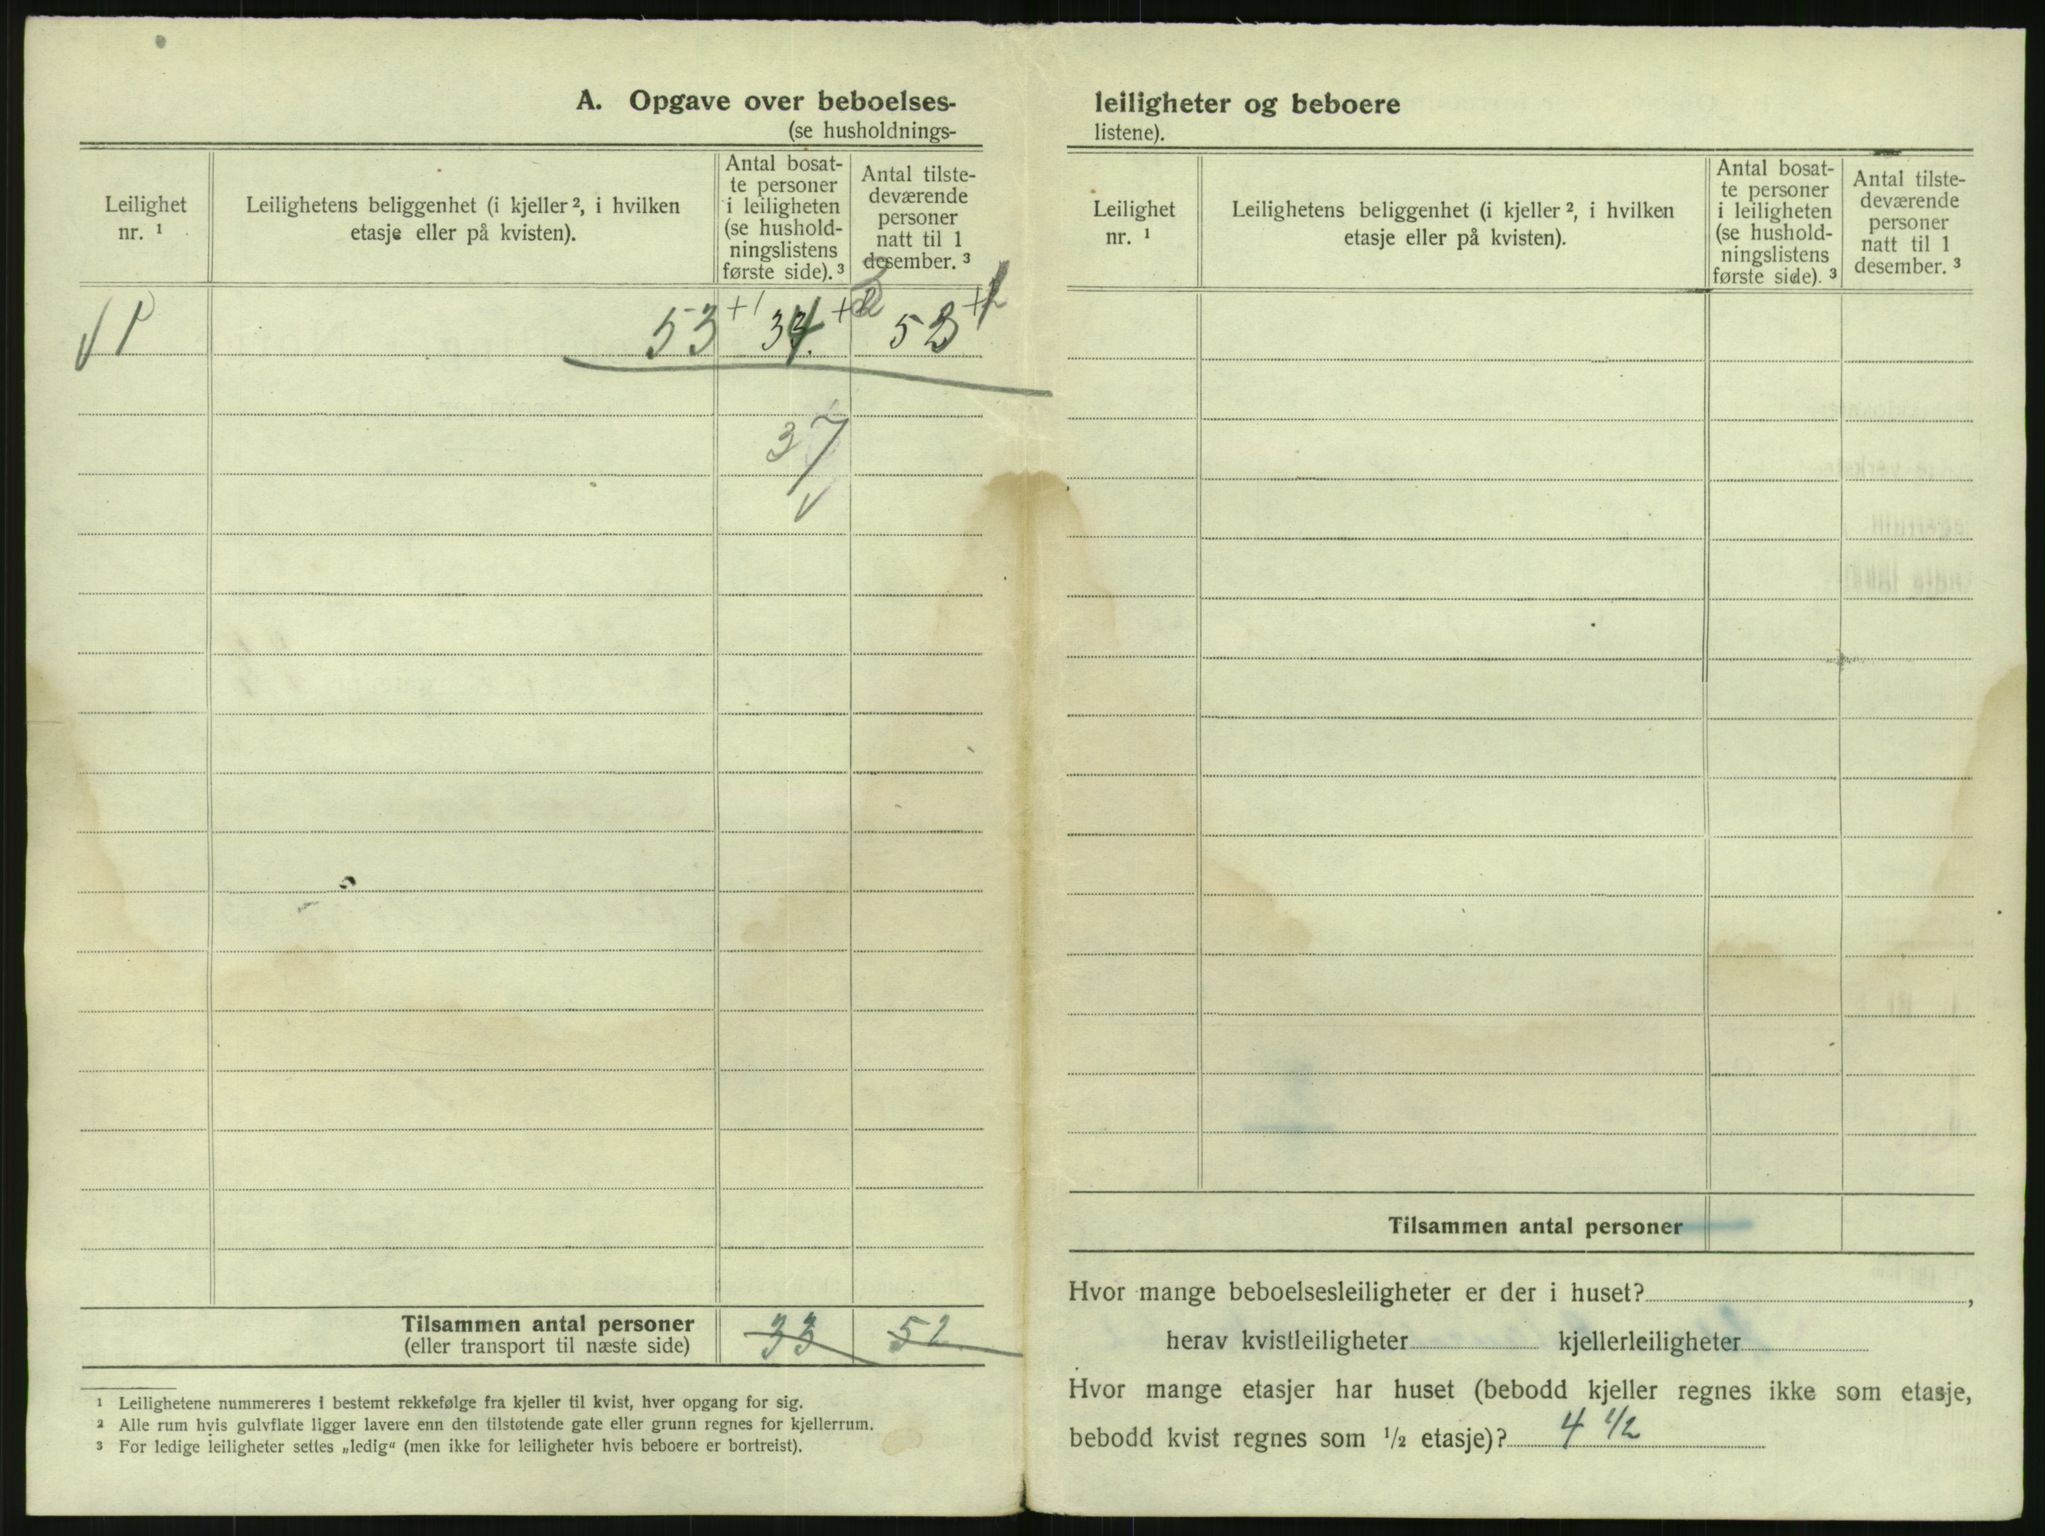 A. Opgave over beboelses-
(se husholdnings-
Leilighet
nr. ¹
Leilighetens beliggenhet (i kjeller ², i hvilken
etasje eller på kvisten).
Antal bosat-
te personer
i leiligheten
(se hushold-
ningslistens
første side). ³
Antal tilste-
deværende
personer
natt til 1
desember. ³
√ 1 53 +1
37
√
Tilsammen antal personer 33 52
(eller transport til næste side)
¹ Leilighetene nummereres i bestemt rekkefølge fra kjeller til kvist, hver opgang for sig.
² Alle rum hvis gulvflate ligger lavere enn den tilstøtende gate eller grunn regnes for kjellerrum.
³ For ledige leiligheter settes „ledig“ (men ikke for leiligheter hvis beboere er bortreist).
leiligheter og beboere
listene).
Leilighet
nr. ¹
Leilighetens beliggenhet (i kjeller ², i hvilken
etasje eller på kvisten).
Antal bosat-
te personer
i leiligheten
(se hushold-
ningslistens
første side). ³
Antal tilste-
deværende
personer
natt til 1
desember. ³
Tilsammen antal personer
Hvor mange beboelsesleiligheter er der i huset? ,
herav kvistleiligheter kjellerleiligheter
Hvor mange etasjer har huset (bebodd kjeller regnes ikke som etasje,
bebodd kvist regnes som ½ etasje)? 4 ½